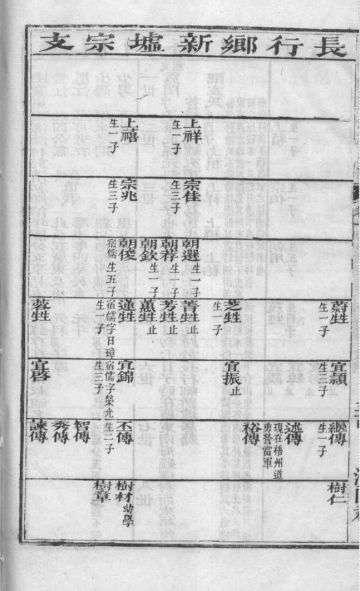 長行鄉新墟宗支
上祥
生一子
上禧
生一子
宗佳
生三子
宗兆
生三子
朝選
生一子
朝荐
生一子
朝欽
生一子
朝俊
宿儒生五子
蔚甡
生一子
芝甡
生一子
菁甡止
芳甡止
蕙甡止
蓮甡
宿儒字日璋
生一子
蓉甡
宜頴
生三子
宜振止
宜錦
宿儒字榮光
生三子
宜啓
繼傳
生一子
述傳
現在梧州道
勇營當軍
裕傳
丕傳
生二子
智傳
秀傳
諫傳
樹仁
樹材幼學
樹章